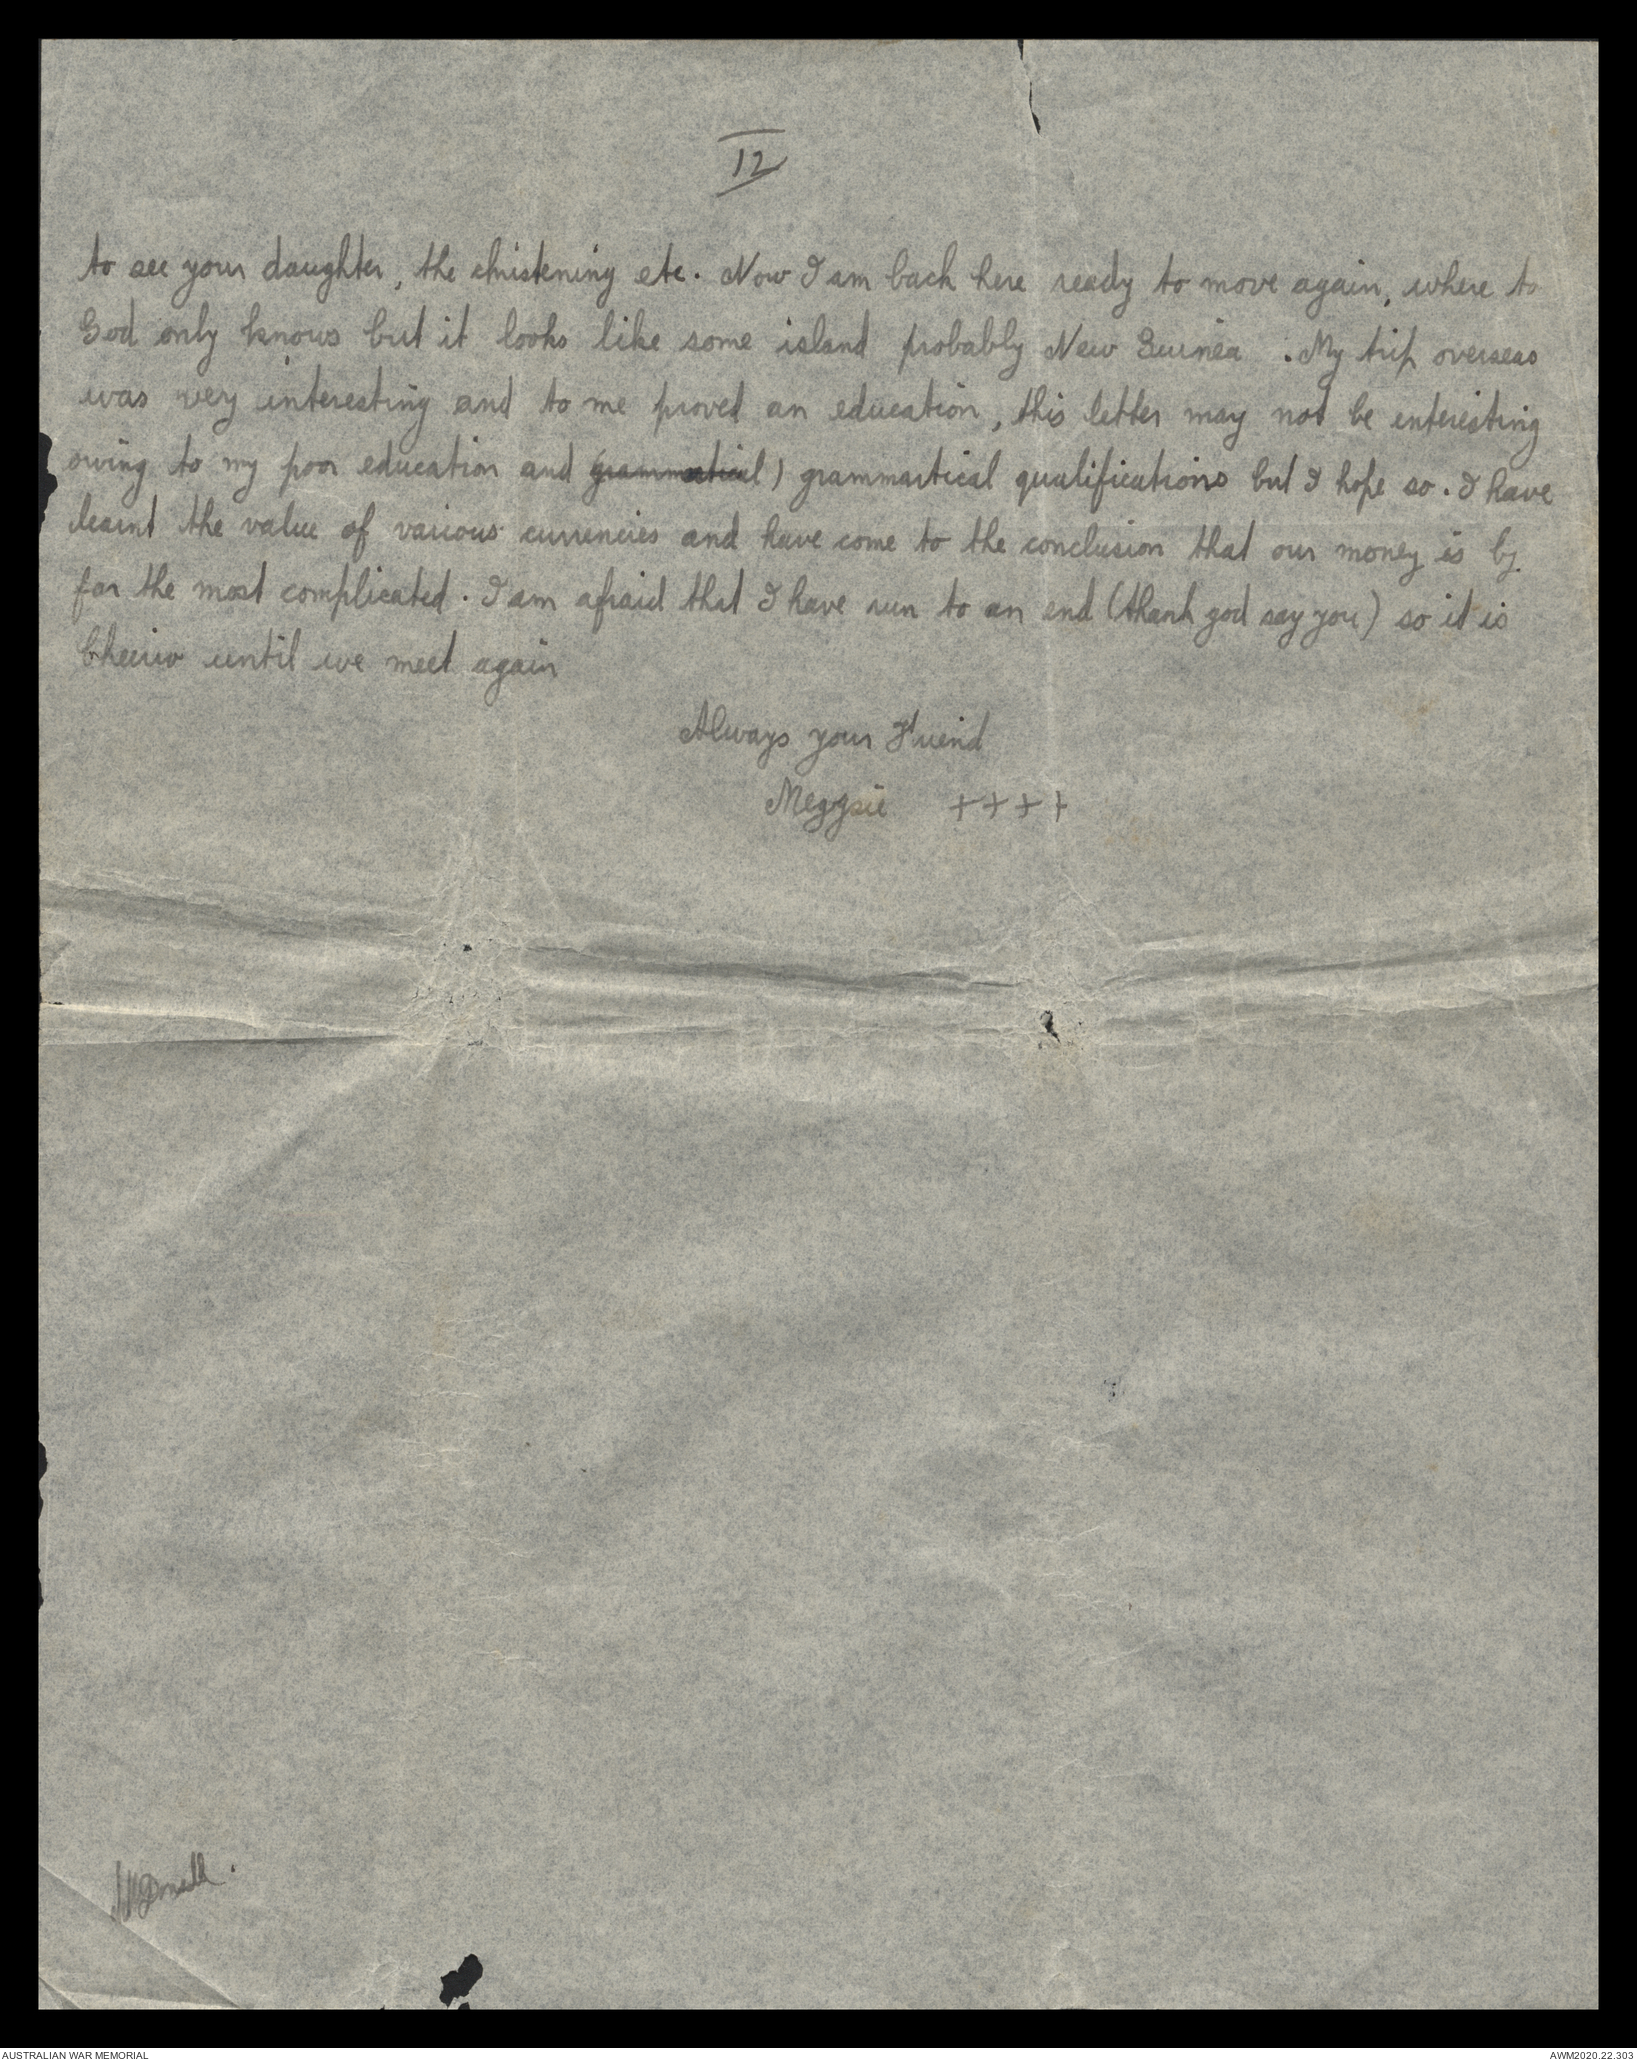 12
to see your daughter, the christening etc. Now I am back here ready to move again, where to
God only knows but it looks like some island probably New Guinea . My trip overseas
was very interesting and to me proved an education, this letter may not be enteristing
owing to my poor education and (grammartical) grammartical qualifications but I hope so. I have
learnt the value of various currencies and have come to the conclusion that our money is by
far the most complicated. I am afraid that I have run to an end (thank god say you) so it is
Cheerio until we meet again
Always your Friend
Meggsie ++++
McDonald.
AUSTRALIAN WAR MEMORIAL
AWM2020.22.303